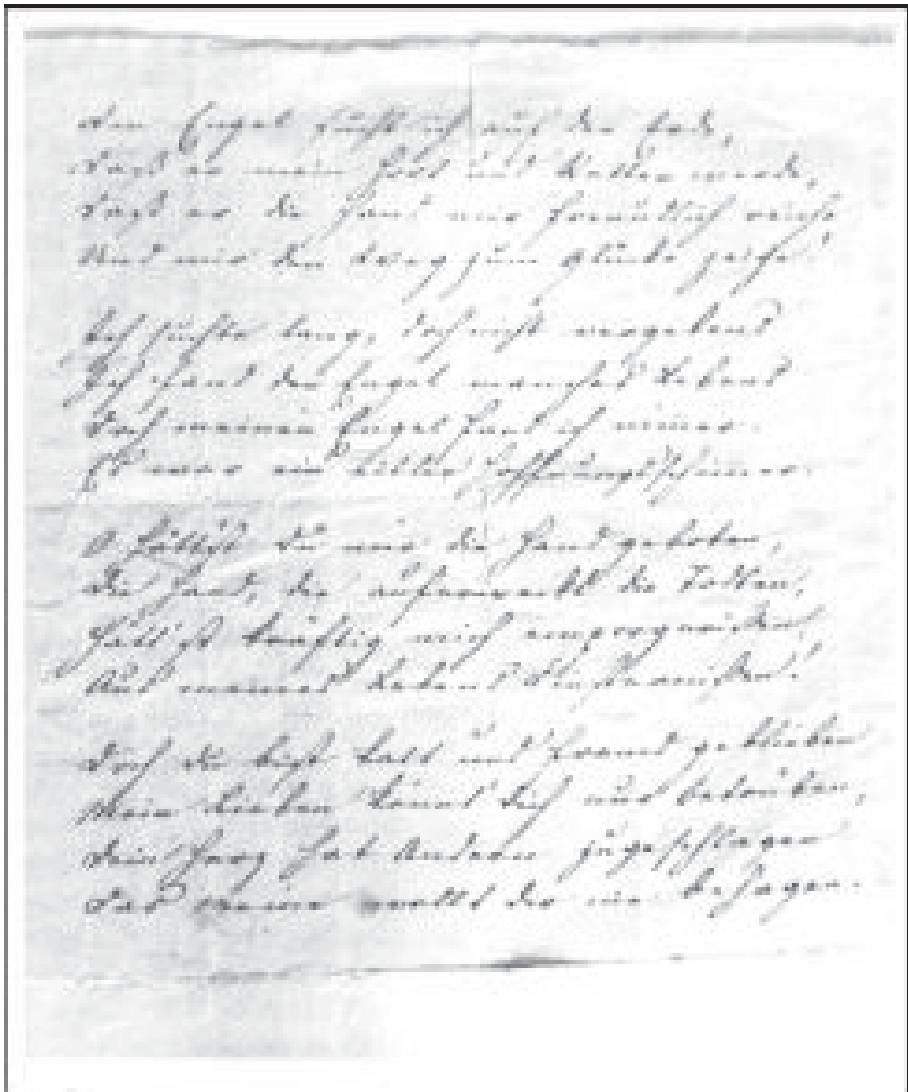 Den Engel sucht' ich auf der Erde,
Daß er mein Hort und Retter werde,
Daß er die Hand mir freundlich reiche
Und mir den Weg zum Glücke zeige!
Ich suchte lang, doch nicht vergebens
Ich fand den Engel manches Lebens
Doch meinen Engel fand ich nimmer.
Es war ein Hoffnungsschimmer.
O hätt'st Du mir die Hand geboten,
Die Hand, die auferweckt die Todten,
Hätt'st kräftig mich emporgerissen,
Aus meines Lebens Finsternißen!
Doch Du bist kalt und fremd geblieben
Mein Lieben könnt' Dich nur betrüben,
Dein Herz hat Andern zugeschlagen
Das meine wollt' dir nie behagen.